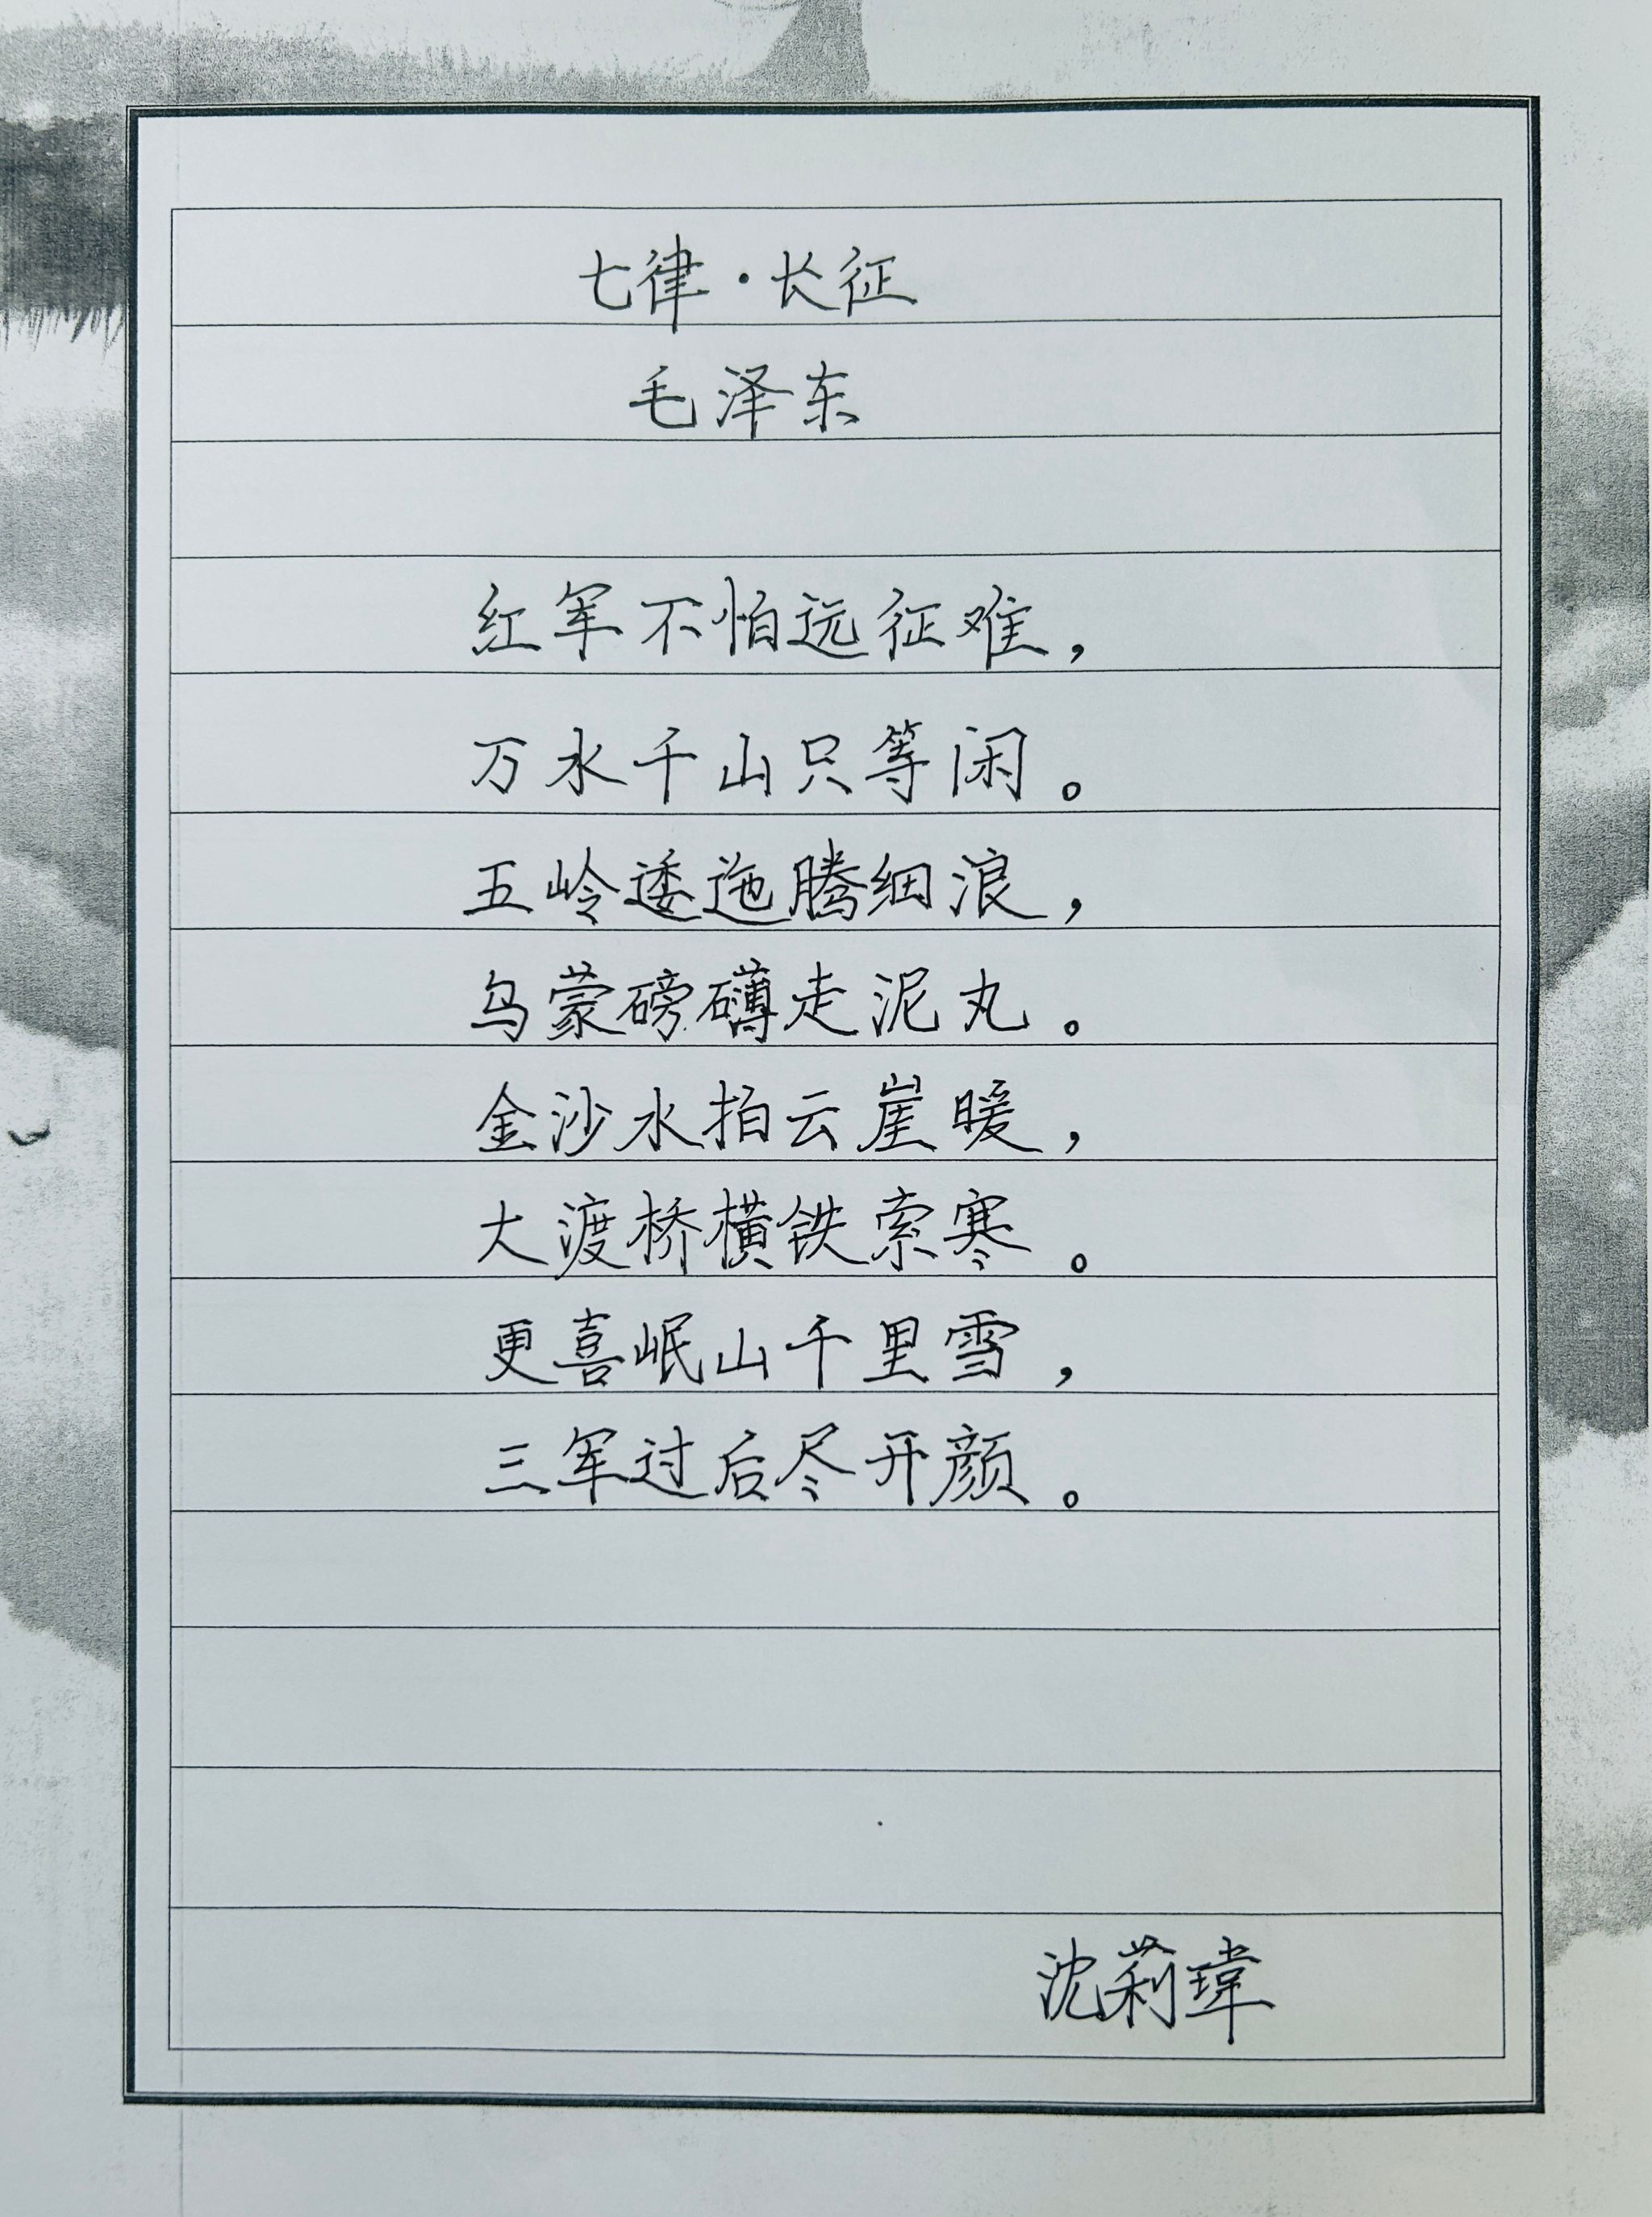 七律·长征
毛泽东
红军不怕远征难，
万水千山只等闲。
五岭逶迤腾细浪，
乌蒙磅礴走泥丸。
金沙水拍云崖暖，
大渡桥横铁索寒。
更喜岷山千里雪，
三军过后尽开颜。
沈莉瑋